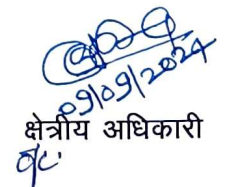 09/09/2024
क्षेत्रीय अधिकारी